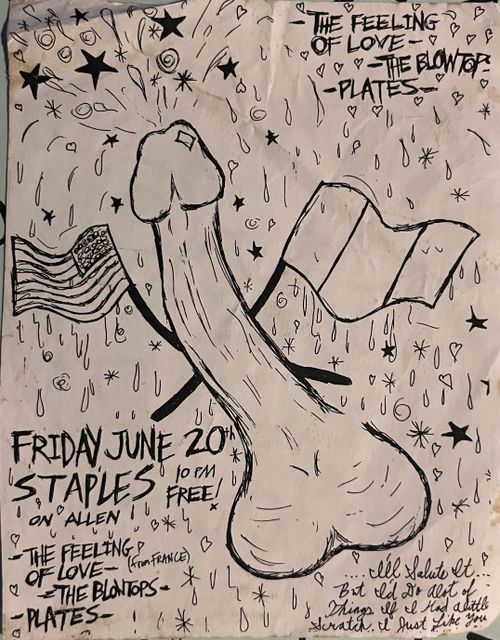 -THE FEELING
OF LOVE-
-THE BLOWTOPS-
-PLATES-
FRIDAY JUNE 20th
STAPLES
ON ALLEN
10 PM
FREE!
-THE FEELING
OF LOVE-
(from FRANCE)
-THE BLOWTOPS-
-PLATES-
....I'll Salute It...
But I'd Do Alot of
Things If I Had A little
Scratch. I Just Like You